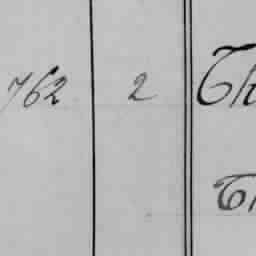 762 2 Th
Th